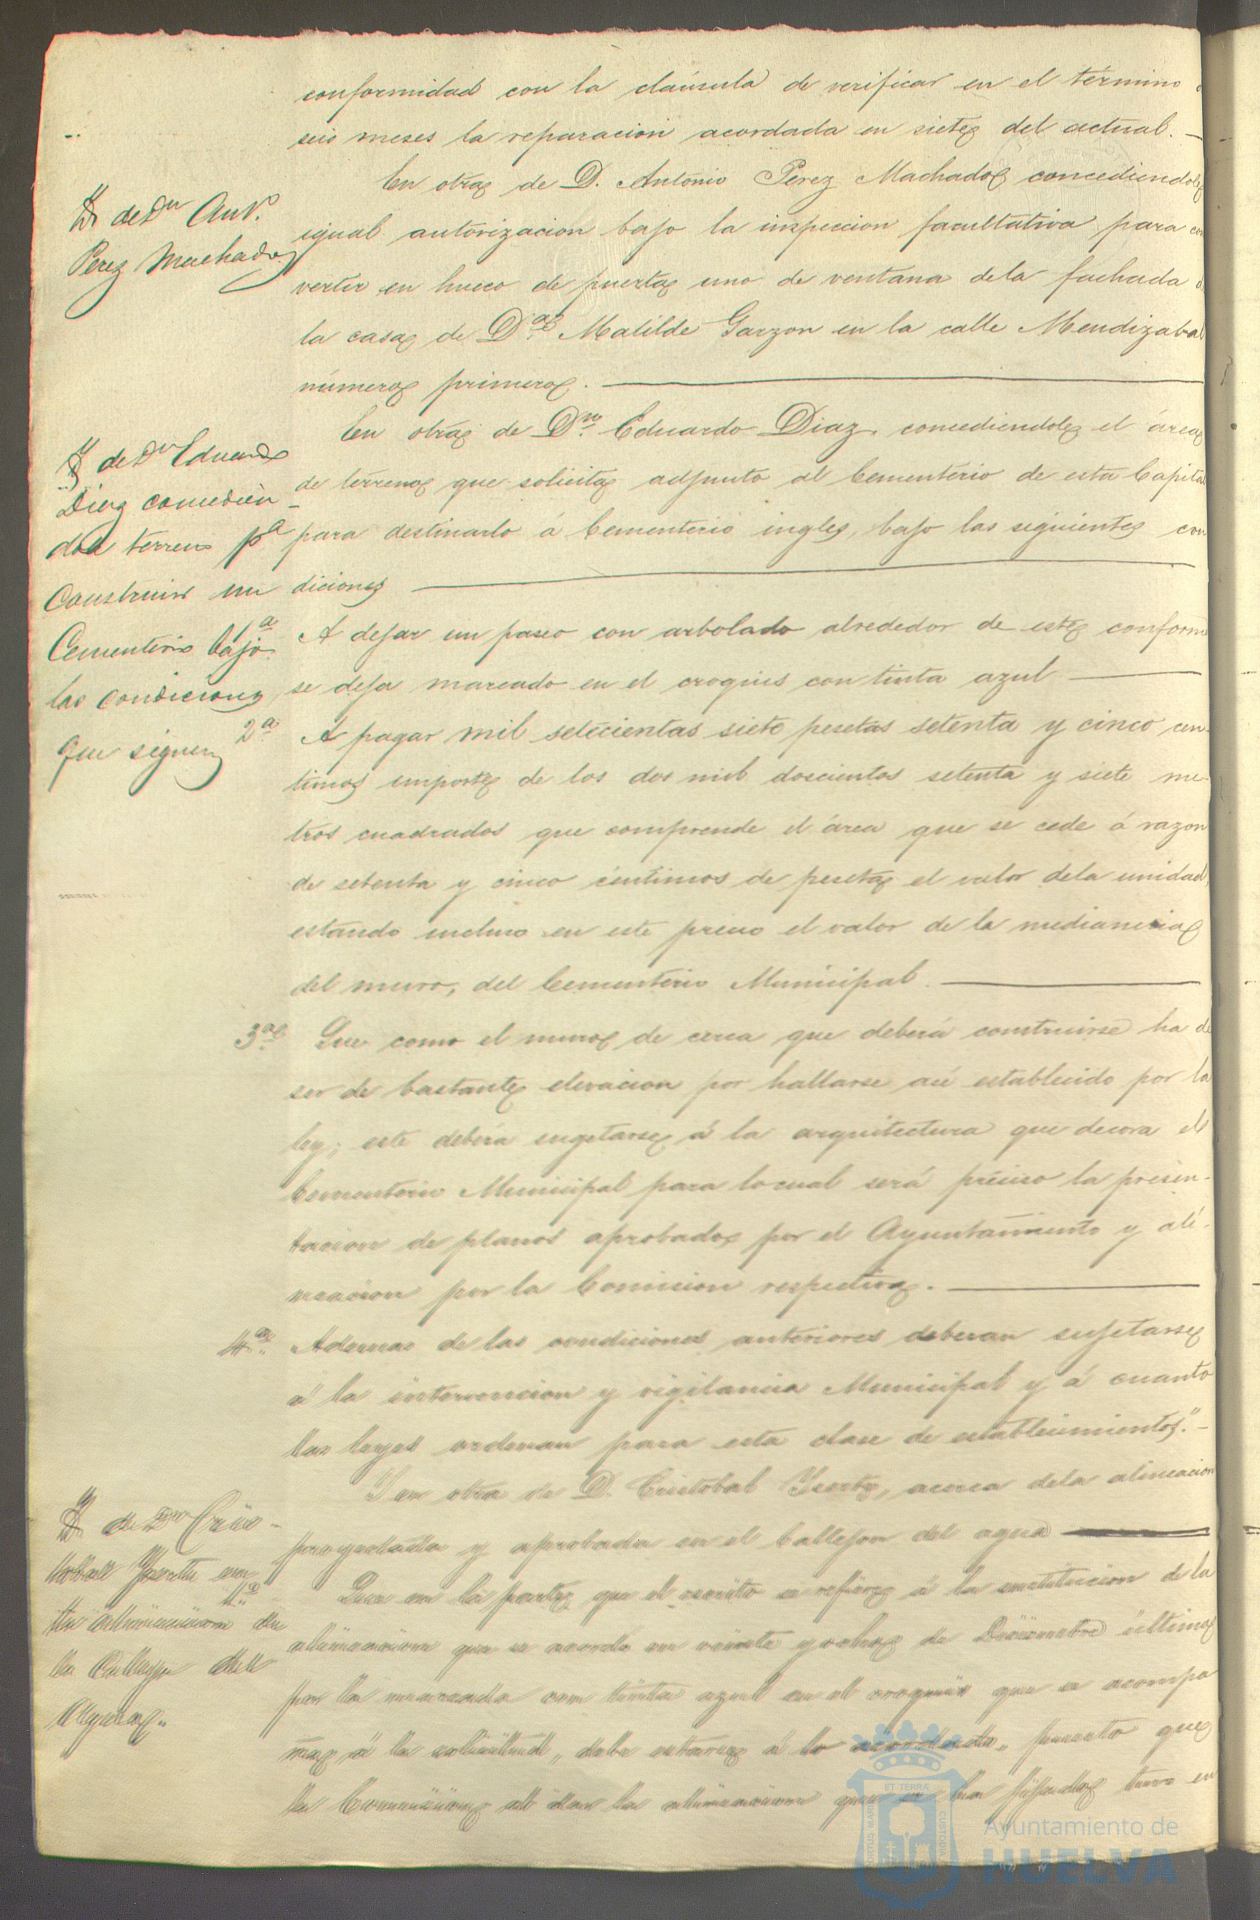 conformidad con la claúsula de verificar en el término
seis meses la reparacion acordada en siete del actual. —
En otra de D. Antonio Perez Machado concediendole
igual autorizacion bajo la inspeccion facultativa para con
vertir en hueco de puerta uno de ventana dela fachada d
la casa de D.ª Matilde Garzon en la calle Mendizabal
número primero. —
En otra de Dn. Eduardo Diaz, concediendole el área
de terreno que solicita adjunto al Cementerio de esta Capital
para destinarlo á Cementerio ingles, bajo las siguientes con
diciones —
1ª A dejar un paseo con arbolado alrededor de este conforme
se deja marcado en el croquis con tinta azul —
2ª A pagar mil setecientas siete pesetas setenta y cinco cen-
timos importe de los dos mil doscientos setenta y siete me-
tros cuadrados que comprende el área que se cede á razon
de setenta y cinco centimos de peseta el valor dela unidad,
estando incluso en este precio el valor de la medianeria
del muro, del Cementerio Municipal. —
3ª Que como el muro de cerca que deberá construirse ha de
ser de bastante elevacion por hallarse asi establecido por la
ley; este debera sugetarse á la arquitectura que decora el
Cementerio Municipal para lo cual será preciso la presen-
tacion de planos aprobados por el Ayuntamiento y ali-
neacion por la Comision respectiva. —
4ª Ademas de las condiciones anteriores deberan sujetarse
á la intervencion y vigilancia Municipal y á cuanto
las leyes ordenan para esta clase de establecimientos." —
Y en otra de D. Cristobal Yserte, acerca dela alineacion
proyectada y aprobada en el Callejon del agua —
1ª Que en la parte que el escrito se refiere á la rectificacion de la
alineacion que se acordó en veinte y ocho de Diciembre último
por la marcada con tinta azul en el croquis que se acompa
ña á la solicitud, debe estarse á lo acordado, puesto que
la Comision al dar la alineacion que se ha fijado tuvo en
Y. de Dn Ant.
Perez Machado
Y. de Dn Eduardo
Diaz concedien-
dole terreno pª
Construir un
Cementerio bajo
las condiciones
que siguen
Y. de Dn Cris-
tobal Yserte en
la alineacion de
la Calleja del
Agua.
ET TERRÆ
CUSTODIA
Ayuntamiento de
HUELVA